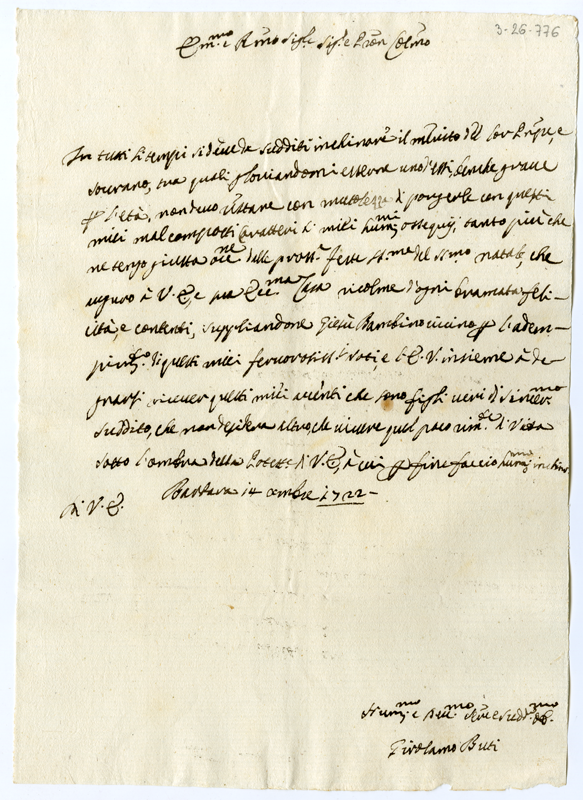 3-26-776
Em.mo e R.mo Sig.re Sig.re e Pron Colmo
In tutti li tempi si deve da sudditi inchinare il merito del lor Prnpe, e
sovrano, tra quali gloriandomi essere uno d'essi, benche grave
p l'età, non devo ristare con mutolezza di porgerle con questi
miei mal composti Caratteri li miei humi ossequij, tanto più che
ne tengo giusta occne delle pross.e feste SS.me del SSmo natale, che
auguro à V. E, e sua Ecc.ma Casa ricolme d'ogni bramata feli-
cità, e contenti, suppliandone Giesù Bambino p l'adem-
pimto di questi miei fervorosiss.i voti, e l'E. V. insieme à de-
gnarsi ricever questi miei accenti che sono figli veri di sincermo
suddito, che non desidera altro che vivere quel poco rimte di Vita
sotto l'ombra della Potete di V. E, à cui p fine faccio humma inchino
Di V. E. Bassano 14 Xmbre 1722 -
Hummo e Devmo Serre e Suddmo
Girolamo Buti